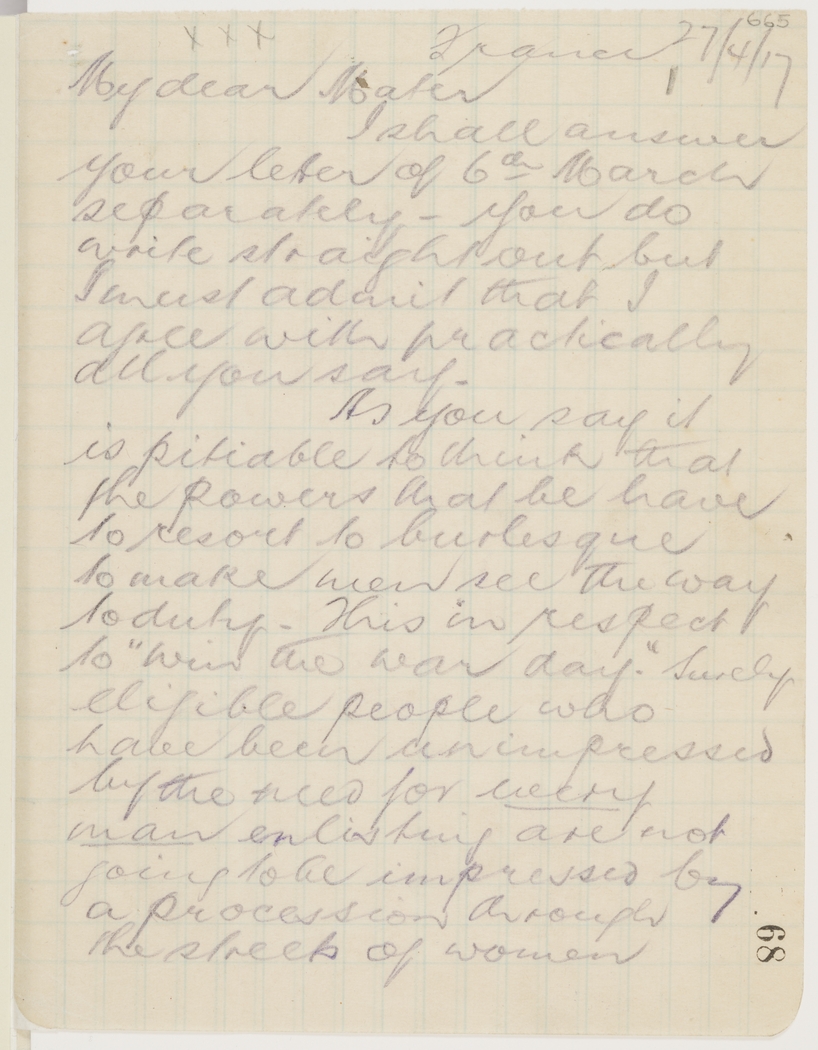 665
x x x
France 27/4/17
My dear Mater
I shall answer
your letter of 6th March
separately - you do
write straight out but
I must admit that I
agree with practically
all you say.
As you say it
is pitiable to think that
the powers that be have
to resort to burlesque
to make men see the way
to duty - This in respect
to "win the war day." Surely
eligible people who
have been unimpressed
by the need for every
man enlisting are not
going to be impressed by
a procession through
the streets of women
68